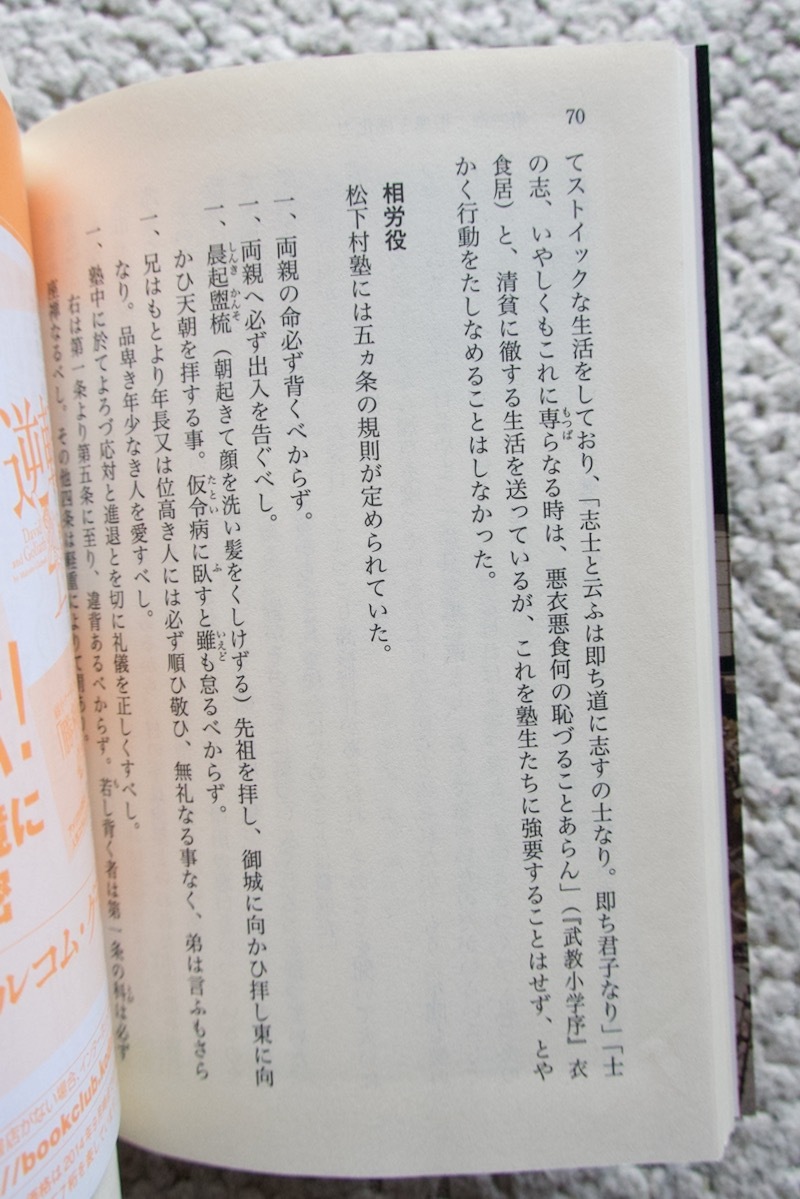 70
てストイックな生活をしており、「志士と云ふは即ち道に志すの士なり。即ち君子なり」「士
の志、いやしくもこれに専らなる時は、悪衣悪食何の恥づることあらん」(『武教小学序』衣
もつぱ
食居)と、清貧に徹する生活を送っているが、これを塾生たちに強要することはせず、とや
かく行動をたしなめることはしなかった。
相労役
松下村塾には五ヵ条の規則が定められていた。
一、両親の命必ず背くべからず。
一、両親へ必ず出入を告ぐべし。
一、晨起盥梳(朝起きて顔を洗い髪をくしけずる)先祖を拝し、御城に向かひ拝し東に向
しんき かんそ
かひ天朝を拝する事。仮令病に臥すと雖も怠るべからず。
たとい ふ いえど
一、兄はもとより年長又は位高き人には必ず順ひ敬ひ、無礼なる事なく、弟は言ふもさら
なり。品卑き年少なき人を愛すべし。
一、塾中に於てよろづ応対と進退とを切に礼儀を正しくすべし。
右は第一条より第五条に至り、違背あるべからず。若し背く者は第一条の科は必ず
も とが
座禅なるべし。その他四条は軽重によりて罰あり。
逆転
David
and Goliath
に
密
ルコム・グ
//bookclub.ko
2014年